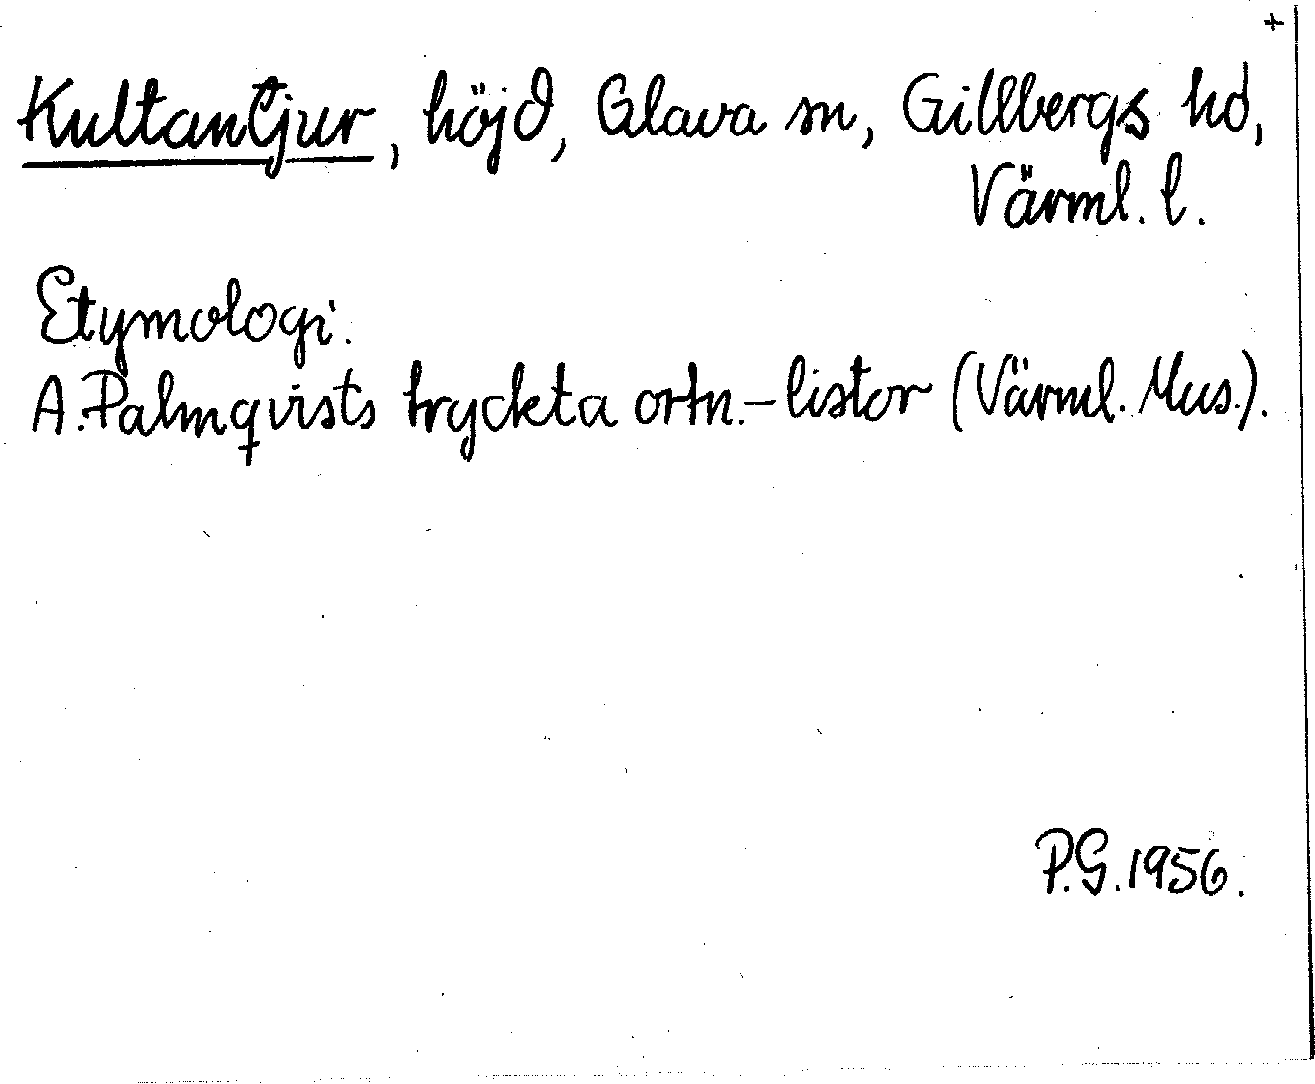 +
Kultantjur, höjd, Glava sn, Gillbergs hd,
Värml. l.
Etymologi.
A. Palmqvists tryckta ortn.-listor (Värml. Mus.).
P.G. 1956.